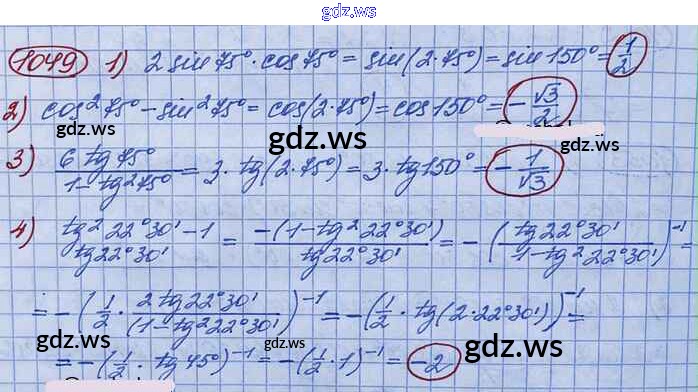 gdz.ws
1049 1) 2 sin 75° · cos 75° = sin(2·75°) = sin 150° = 1/2
2) cos² 75° - sin² 75° = cos(2·75°) = cos 150° = -√3/2
gdz.ws gdz.ws gdz.ws
3) 6 tg 75° / 1 - tg² 75° = 3 · tg(2·75°) = 3 · tg 150° = -1/√3
4) tg² 22°30' - 1 / tg 22°30' = -(1 - tg² 22°30') / tg 22°30' = -(tg 22°30' / 1 - tg² 22°30')⁻¹ =
= -(1/2 · 2 tg 22°30' / (1 - tg² 22°30'))⁻¹ = -(1/2 · tg(2·22°30'))⁻¹ =
gdz.ws gdz.ws gdz.ws
= -(1/2 · tg 45°)⁻¹ = -(1/2 · 1)⁻¹ = -2